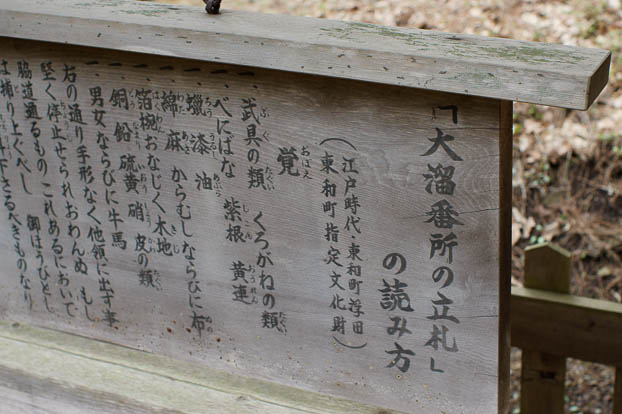 「大溜番所の立札」
の読み方
（江戸時代、東和町浮田
東和町指定文化財）
覚
一、武具の類 くろがねの類
一、べにはな 紫根 黄連
一、蠟 漆 油
一、綿 麻 からむしならびに布
一、箔椀おなじく木地
一、銅 鉛 硫黄 硝 皮の類
一、男女ならびに牛馬
右の通り手形なく他領に出す事
堅く停止せられおわんぬ もし
脇道通るもの これあるにおいて
は捕り上ぐべし 御ほうびとし
下さるべきものなり